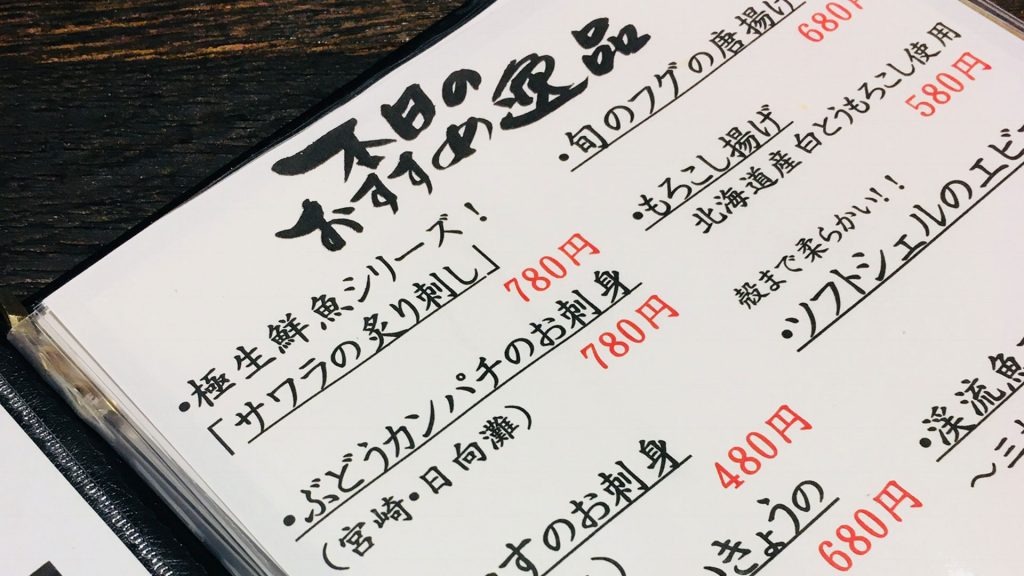 本日の
おすすめ逸品
・極生鮮魚シリーズ！
「サワラの炙り刺し」
780円
・ぶどうカンパチのお刺身
780円
（宮崎・日向灘）
すのお刺身
480円
きょうの
680円
・旬のフグの唐揚げ
680円
・もろこし揚げ
北海道産白とうもろこし使用
580円
殻まで柔らかい!!
・ソフトシェルのエビ
・渓流魚